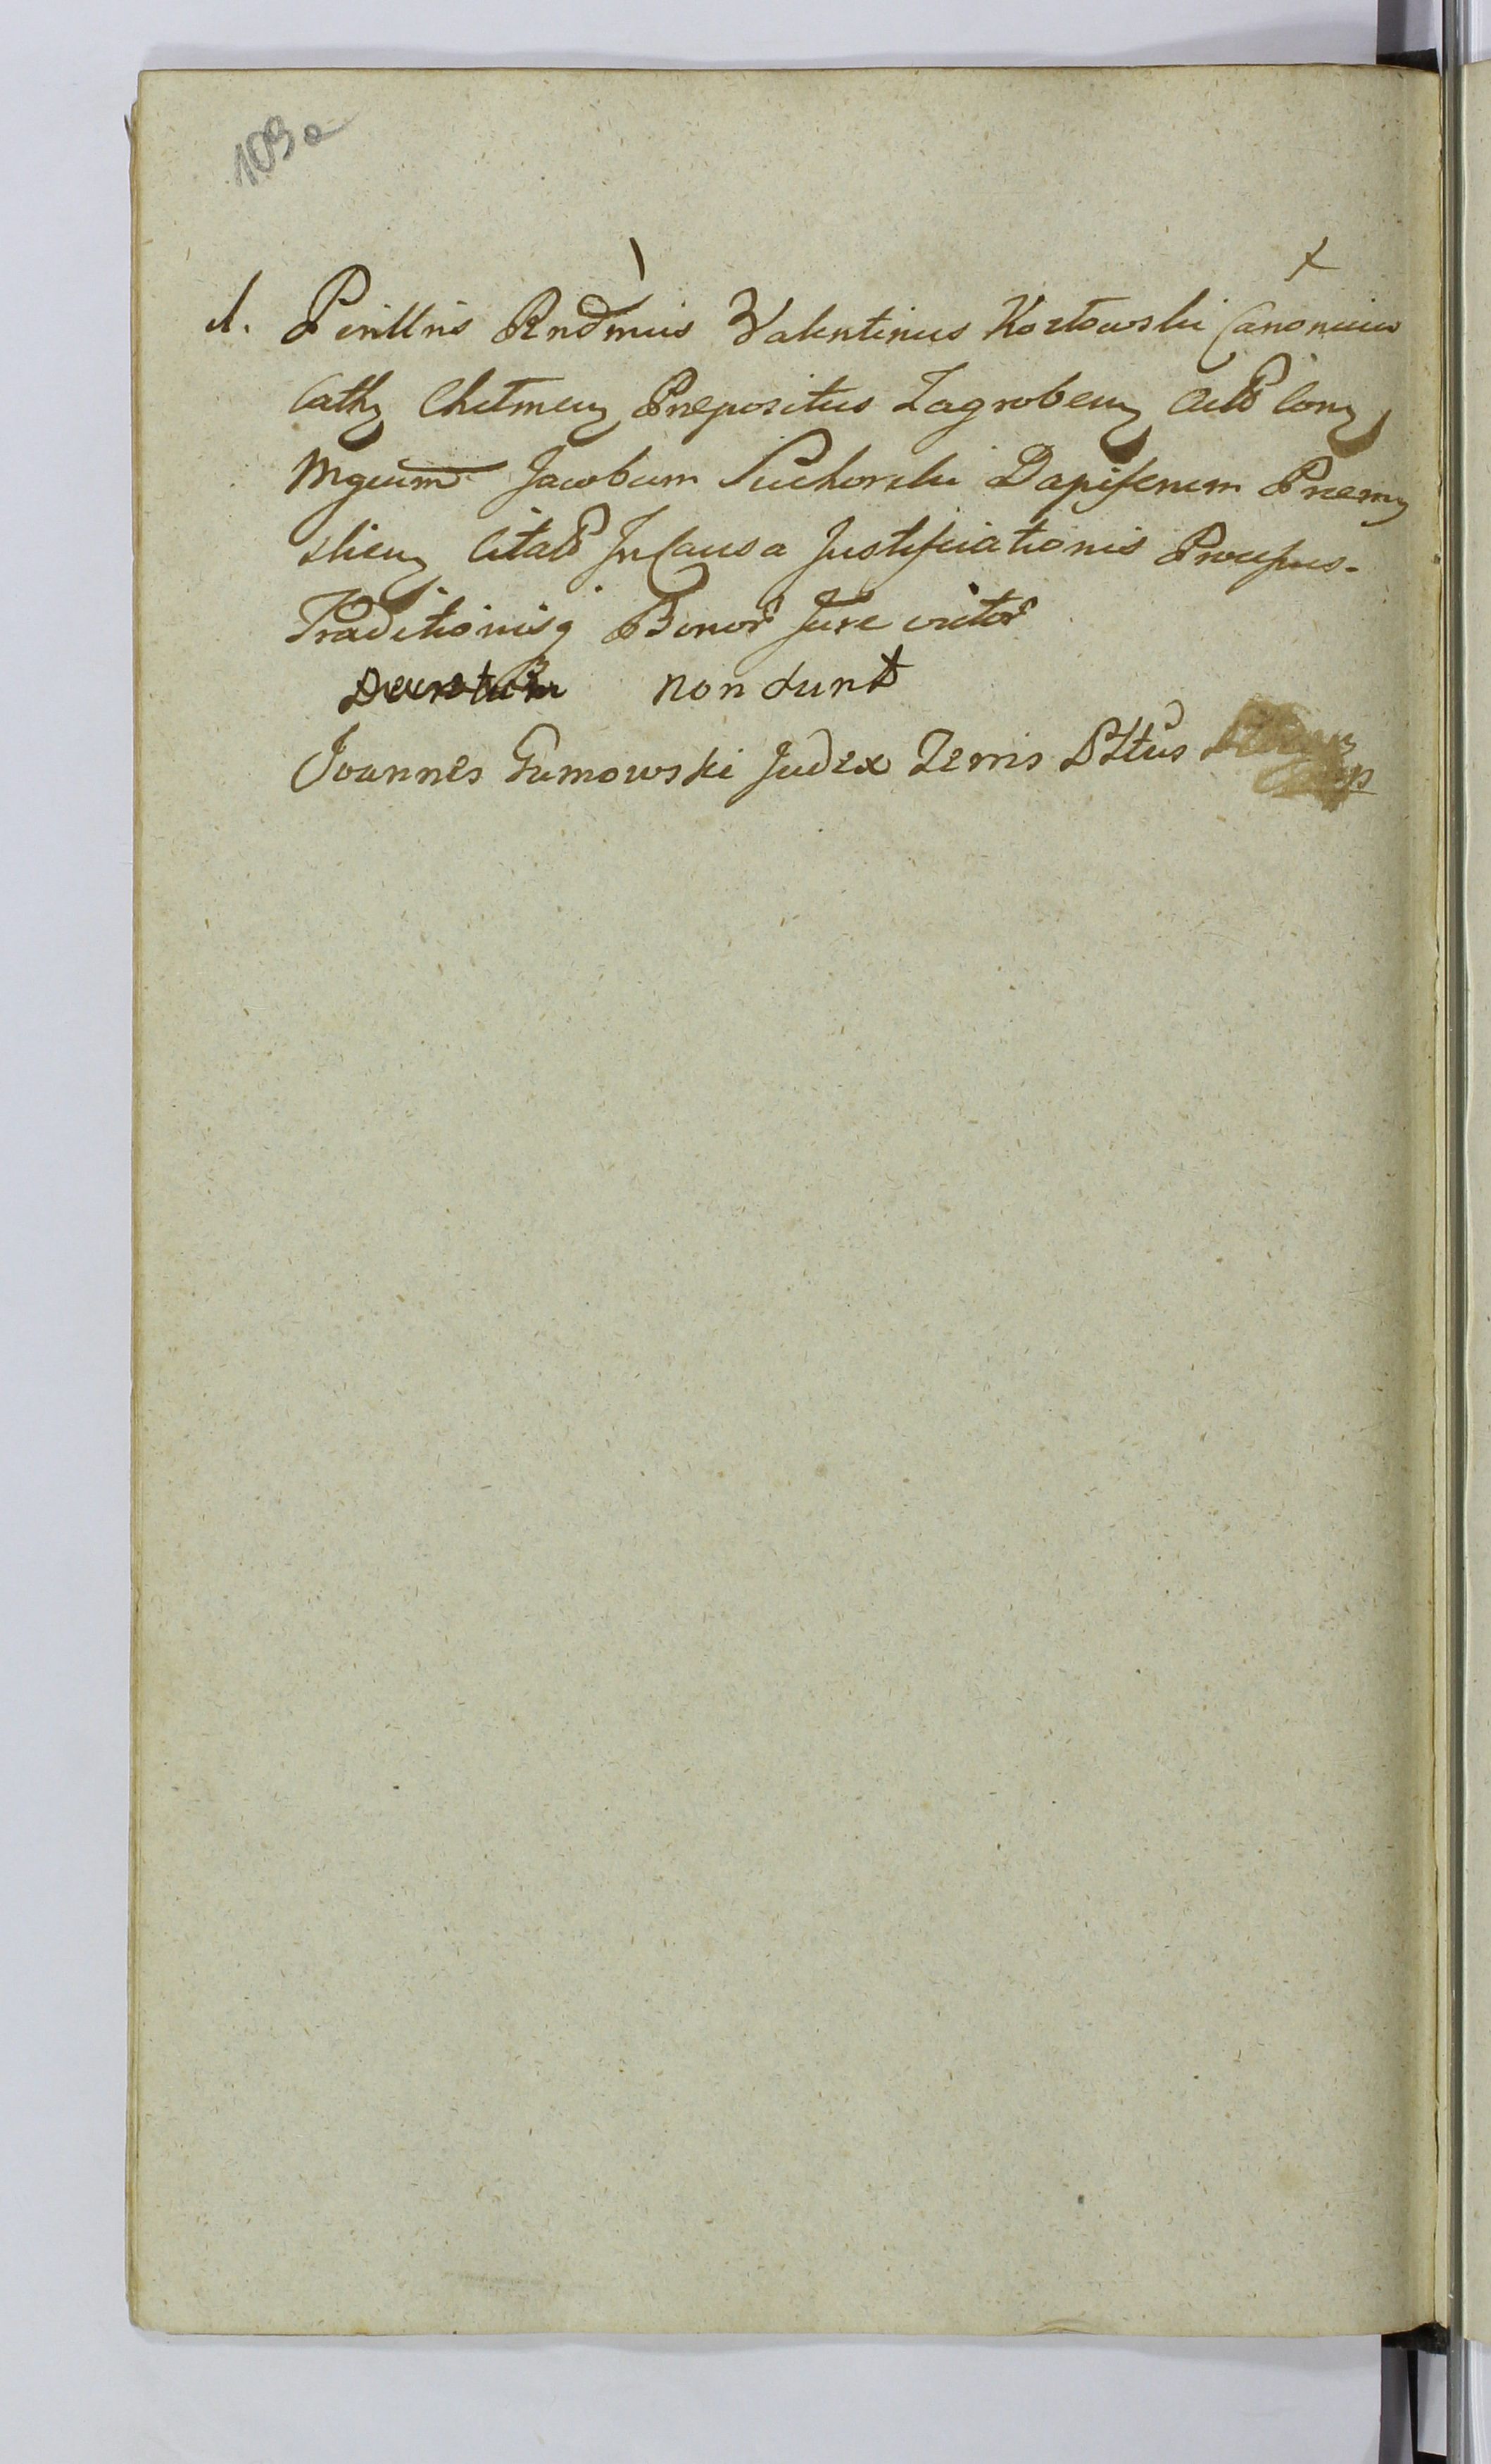 109a
1. Perillris Rndmus Valentinus Kozłowski Canonicus
Cathz Chełmenz Prepositus Zagrobenz Act Conz
Mgcum Jacobum Suchorski Dapiferum Premy
slienz Citat In Causa Justificationis Processus
Traditionisq Bonor Jure victor
non sunt
Joannes Gumowski Judex Terris Dttus